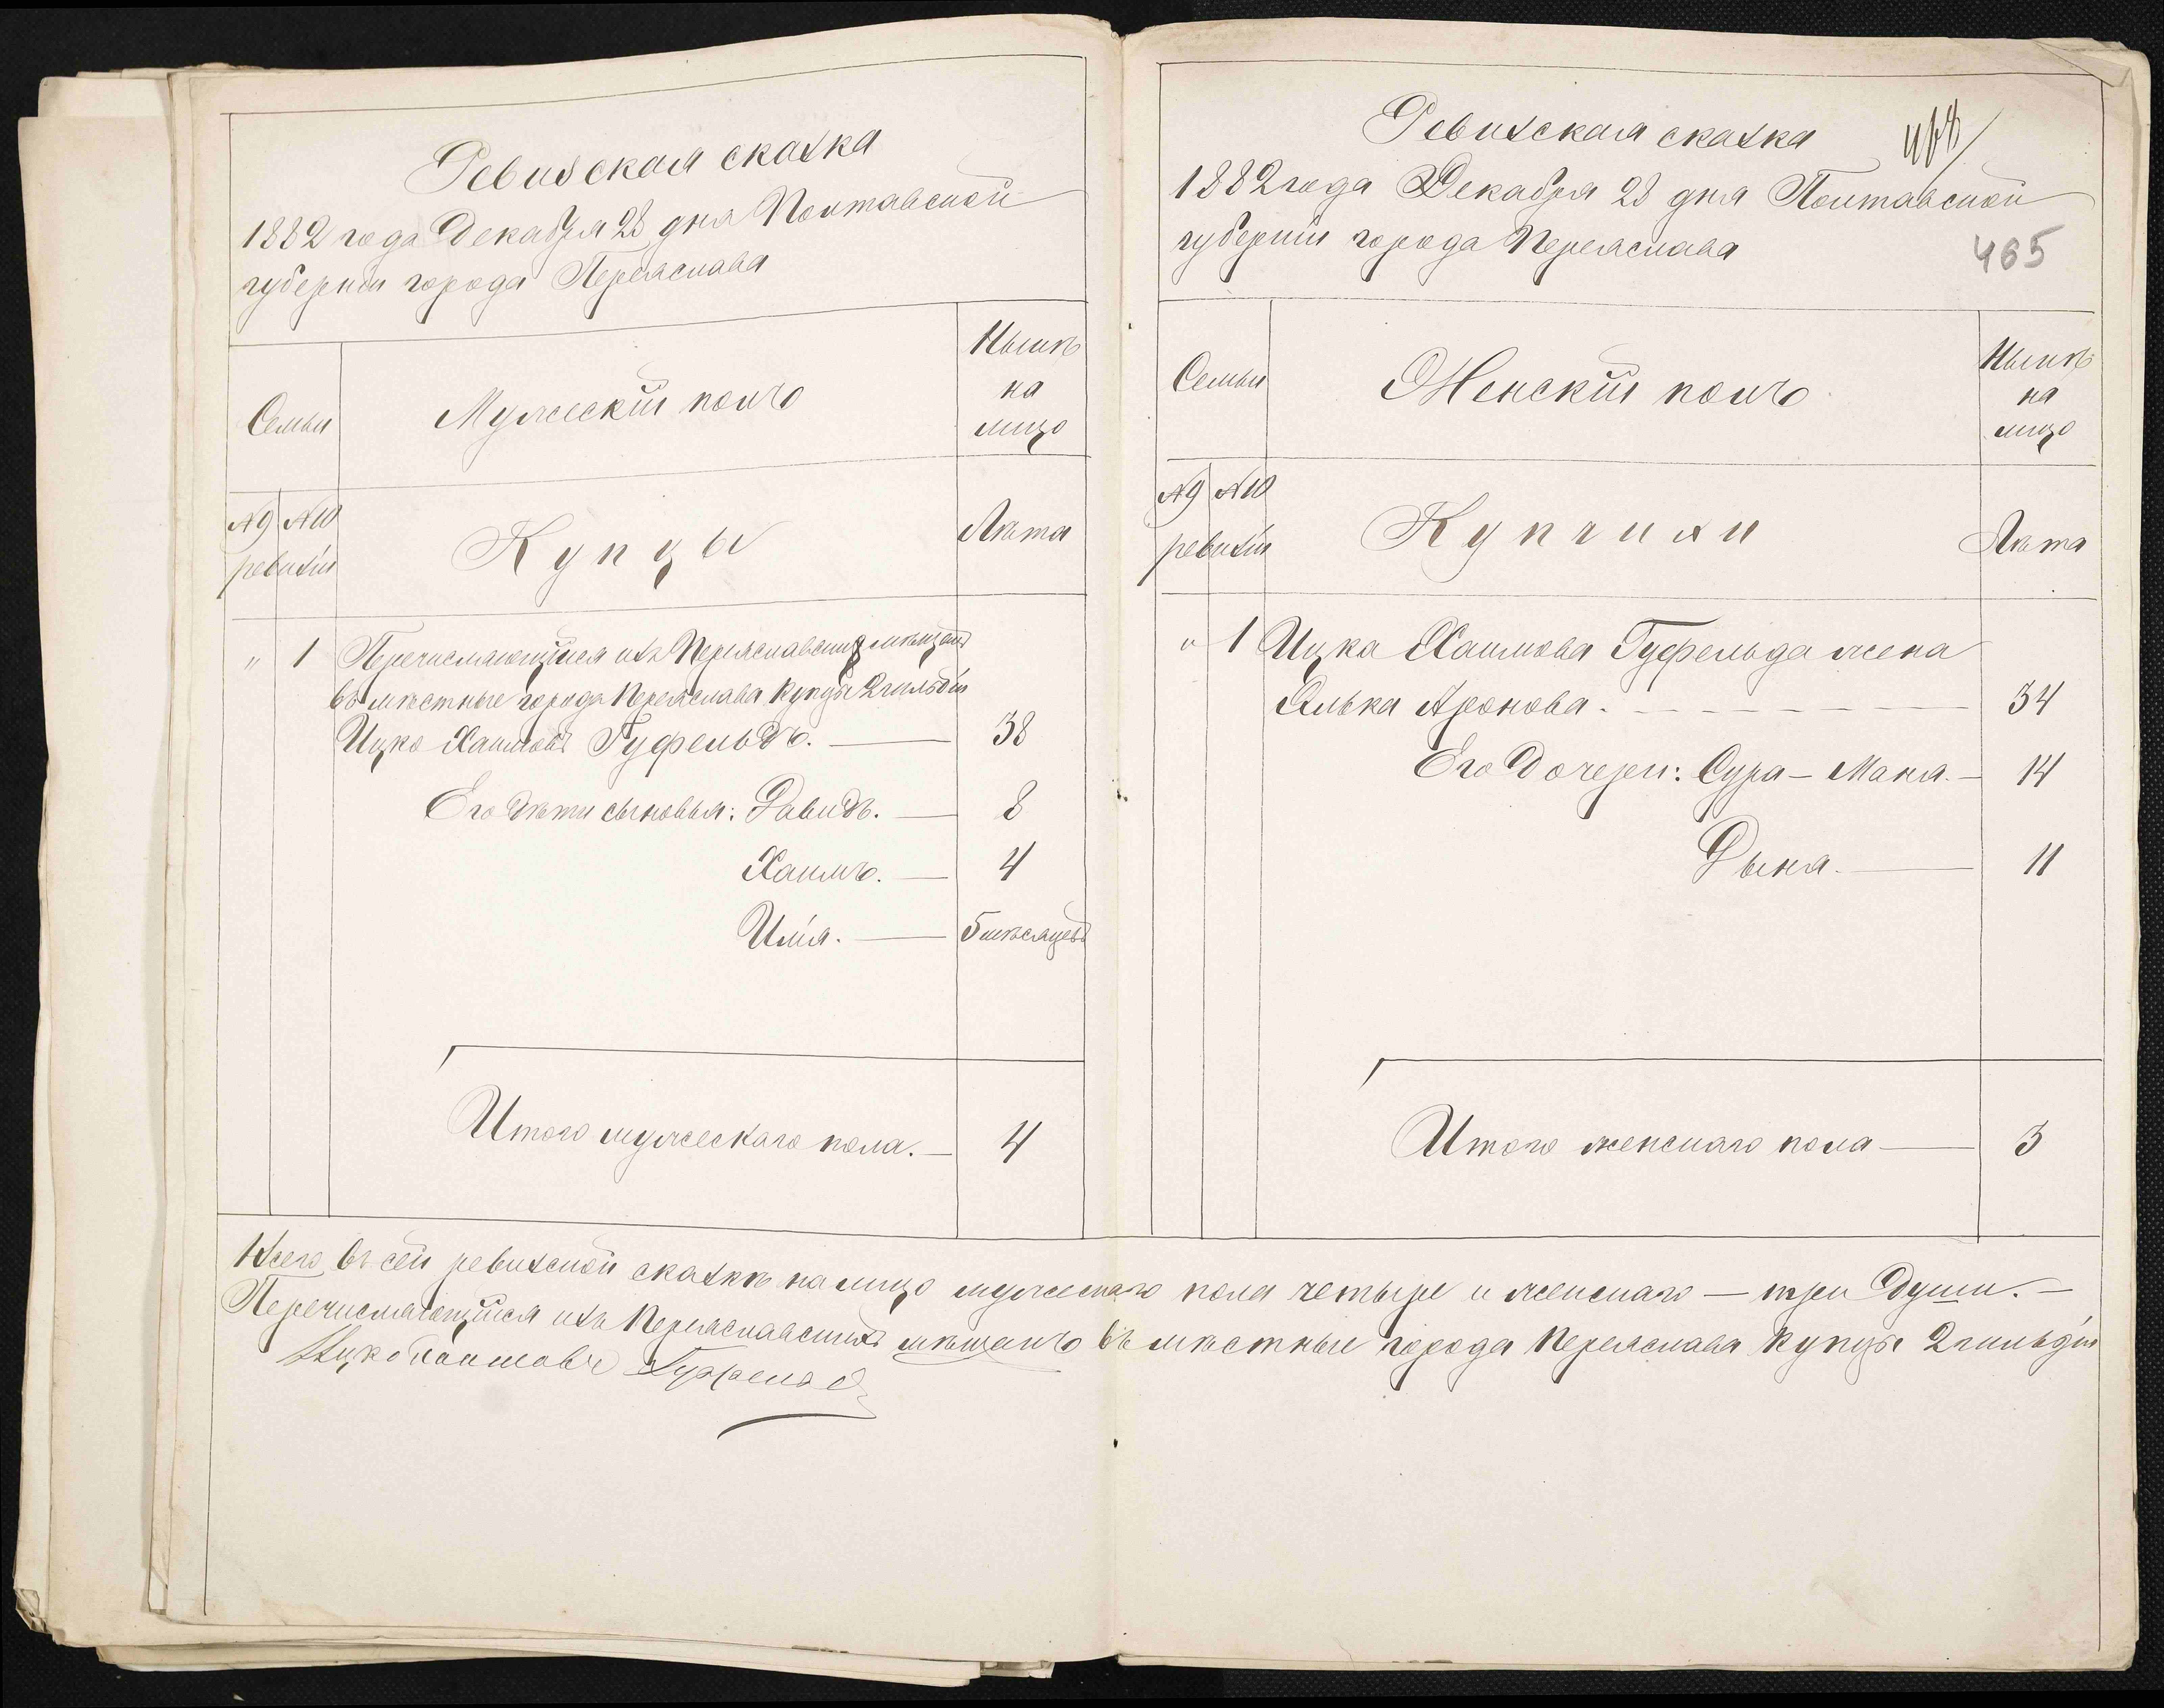 Ревизская сказка
1882 года Декабря 28 дня Полтавской
губернiи города Переяслава
Семьи
Мужескiй полъ
Нынѣ
на
лицо
№ 9 № 10
ревизiи
Купцы
Лѣта
" 1 Перечисляющiйся изъ Переяславскихъ мѣщанъ
въ мѣстные города Переяслава купцы 2 гильдiи
Ицко Хаимовъ Гуфельдъ. — 38
Его дѣти сыновья: Давидъ. — 8
Хаимъ. — 4
Илiя. — 5 мѣсяцевъ
Итого мужескаго пола. — 4
Ревизская сказка
1882 года Декабря 28 дня Полтавской
губернiи города Переяслава
465
Семьи
Женскiй полъ
Нынѣ
на
лицо
№ 9 № 10
ревизiи
Купчихи
Лѣта
" 1 Ицка Хаимова Гуфельда жена
Элька Аронова. — 34
Его дочери: Сура-Маня. — 14
Дыня. — 11
Итого женскаго пола — 3
Всего въ сей ревизской сказкѣ на лицо мужескаго пола четыре и женскаго — три души. —
Перечисляющiйся изъ Переяславскихъ мѣщанъ въ мѣстные города Переяслава купцы 2 гильдiи
Ицко Хаимовъ Гуфельд